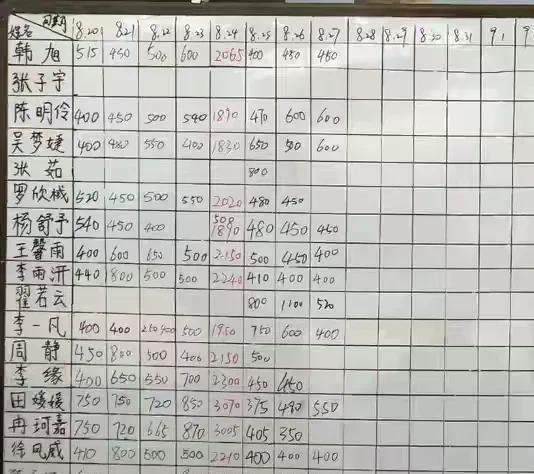 姓名 日期 8.20 8.21 8.22 8.23 8.24 8.25 8.26 8.27 8.28 8.29 8.30 8.31 9.1 9
韩旭 515 450 500 600 2065 400 450 450
张子宇
陈明伶 400 450 500 540 1890 470 600 600
吴梦婕 400 480 550 400 1830 650 500 600
张茹 800
罗欣械 520 450 500 550 2020 480 450
杨舒予 540 450 400 500 1890 480 450 450
王馨雨 400 600 650 500 2150 500 450 400
李雨汧 440 1800 500 500 2240 410 400 400
翟若云 800 1100 520
李一凡 400 400 250400 500 1950 750 600 400
周静 450 800 500 400 2150 500
李缘 400 650 550 700 2300 450 450
田媛媛 750 750 720 850 3070 375 490 550
冉珂嘉 750 720 665 870 3005 405 350
徐凤威 410 800 500 500 2210 400 400 400